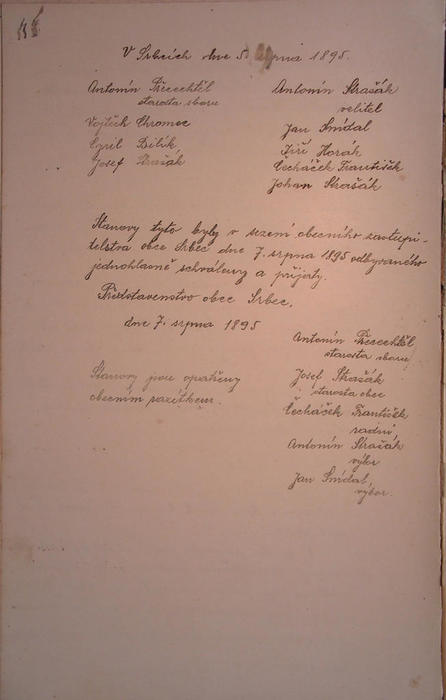 V Srbcích dne 5. srpna 1895.
Antonín Přecechtěl
starosta sboru
Vojtěch Chromec
Cyril Bílík
Josef Strašák
Antonín Strašák
velitel
Jan Snídal
Jiří Horák
Čecháček František
Johan Strašák
Stanovy tyto byly v sezení obecního zastupi-
telstva obce Srbec dne 7. srpna 1895 odbyvaného
jednohlasně schváleny a přijaty.
Představenstvo obce Srbec,
dne 7. srpna 1895
Antonín Přecechtěl
starosta sboru
Josef Strašák
starosta obce
Čecháček František
radní
Antonín Strašák
výbor
Jan Snídal,
výbor.
Stanovy jsou opatřeny
obecním razítkem.